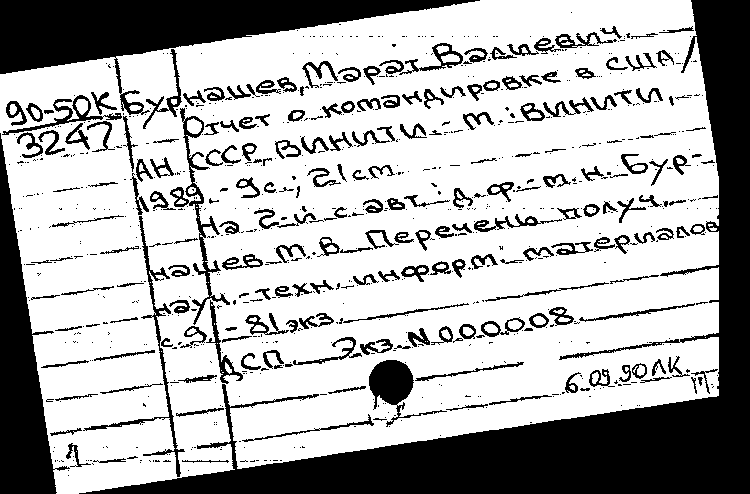 90-50К
3247
Бурнашев, Марат Валиевич.
Отчет о командировке в США /
АН СССР, ВИНИТИ. - М.: ВИНИТИ,
1989. - 9с.; 21см.
На 2-й с. авт.: д.ф.-м.н. Бур-
нашев М.В. Перечень получ.
науч.-техн. информ. материалов
с.9. - 81экз.
ДСП. Экз. N 000008.
6.09.90ЛК.